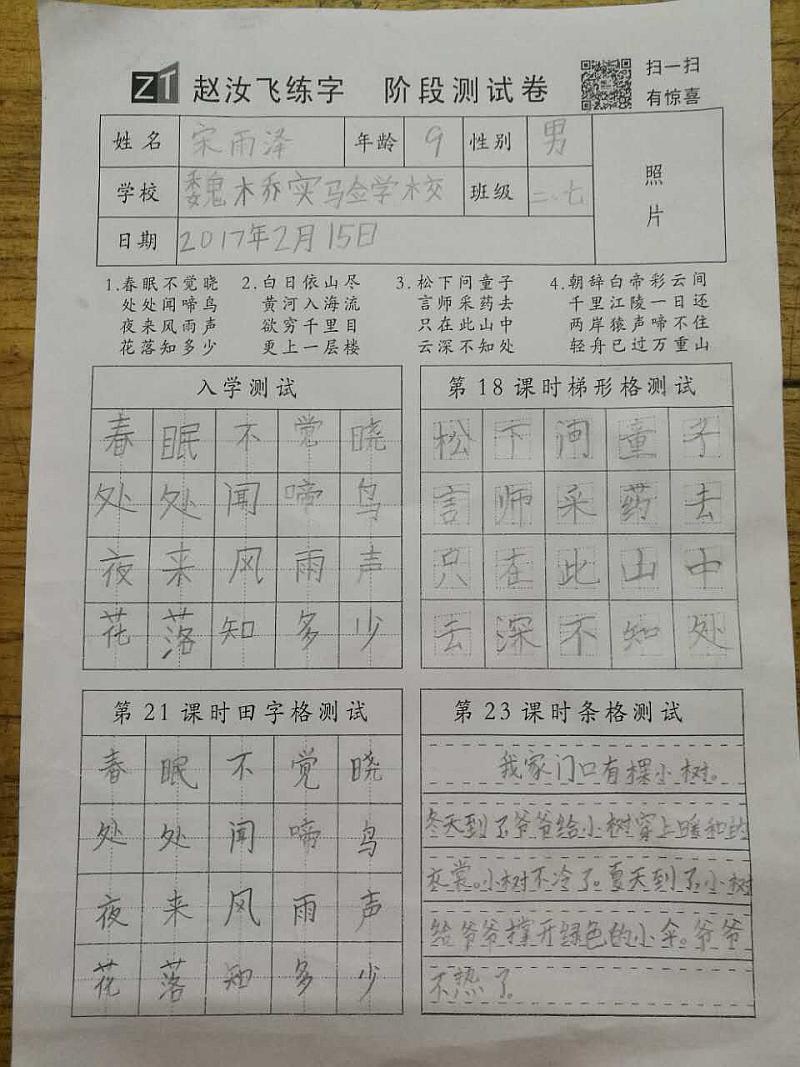 ZT 赵汝飞练字 阶段测试卷 扫一扫
有惊喜
姓名 宋雨泽 年龄 9 性别 男
学校 魏木乔实马佥学木交 班级 二.七
照片
日期 2017年2月15日
1.春眠不觉晓
处处闻啼鸟
夜来风雨声
花落知多少
2.白日依山尽
黄河入海流
欲穷千里目
更上一层楼
3.松下问童子
言师采药去
只在此山中
云深不知处
4.朝辞白帝彩云间
千里江陵一日还
两岸猿声啼不住
轻舟已过万重山
入学测试
春眠不觉晓
处处闻啼鸟
夜来风雨声
花落知多少
第18课时梯形格测试
松下问童子
言师采药去
只在此山中
云深不知处
第21课时田字格测试
春眠不觉晓
处处闻啼鸟
夜来风雨声
花落知多少
第23课时条格测试
我家门口有棵小树。
冬天到了爷爷给小树穿上暖和的
衣裳。小树不冷了。夏天到了,小树
给爷爷撑开绿色的小伞。爷爷
不热了。